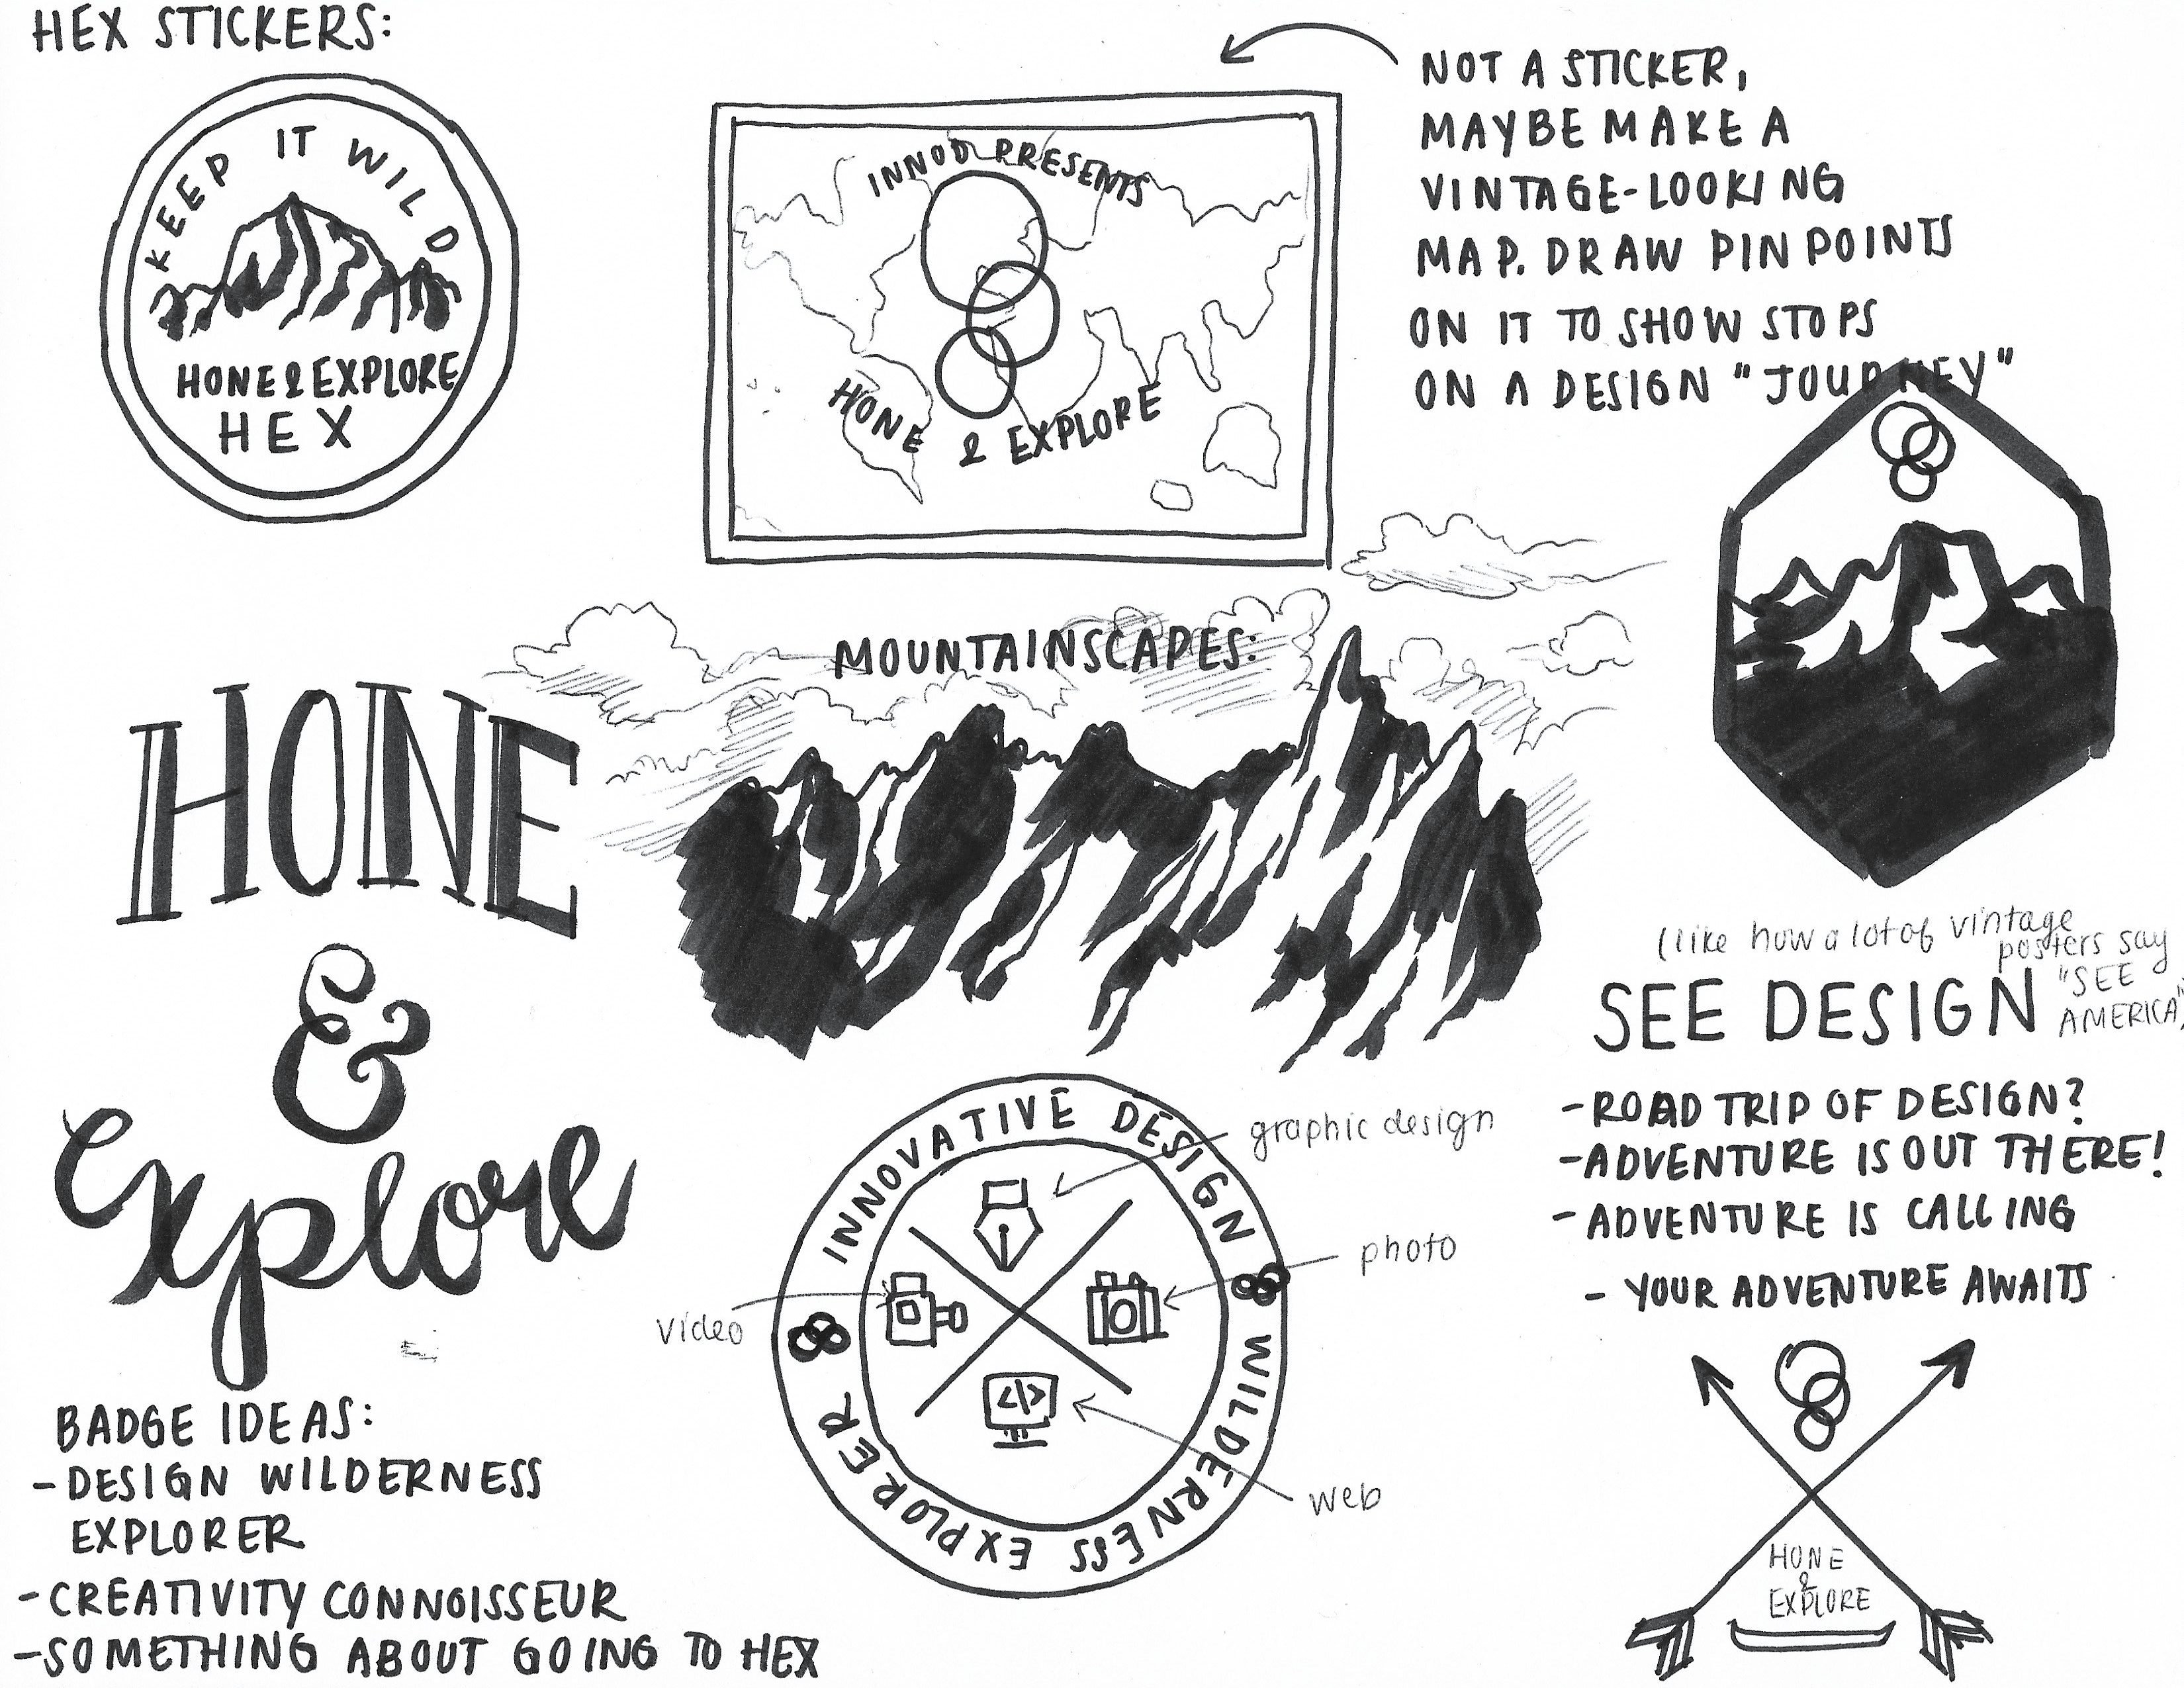 HEX STICKERS:
KEEP IT WILD
HONE & EXPLORE
HEX
INNOD PRESENTS
HONE & EXPLORE
NOT A STICKER,
MAYBE MAKE A
VINTAGE-LOOKING
MAP. DRAW PINPOINTS
ON IT TO SHOW STOPS
ON A DESIGN "JOURNEY"
MOUNTAINSCAPES:
HONE
&
Explore
(like how a lot of vintage
posters say
"SEE
AMERICA")
SEE DESIGN
-ROAD TRIP OF DESIGN?
-ADVENTURE IS OUT THERE!
-ADVENTURE IS CALLING
- YOUR ADVENTURE AWAITS
INNOVATIVE DESIGN
WILDERNESS EXPLORER
graphic design
photo
video
</>
web
BADGE IDEAS:
-DESIGN WILDERNESS
EXPLORER
-CREATIVITY CONNOISSEUR
-SOMETHING ABOUT GOING TO HEX
HONE
&
EXPLORE